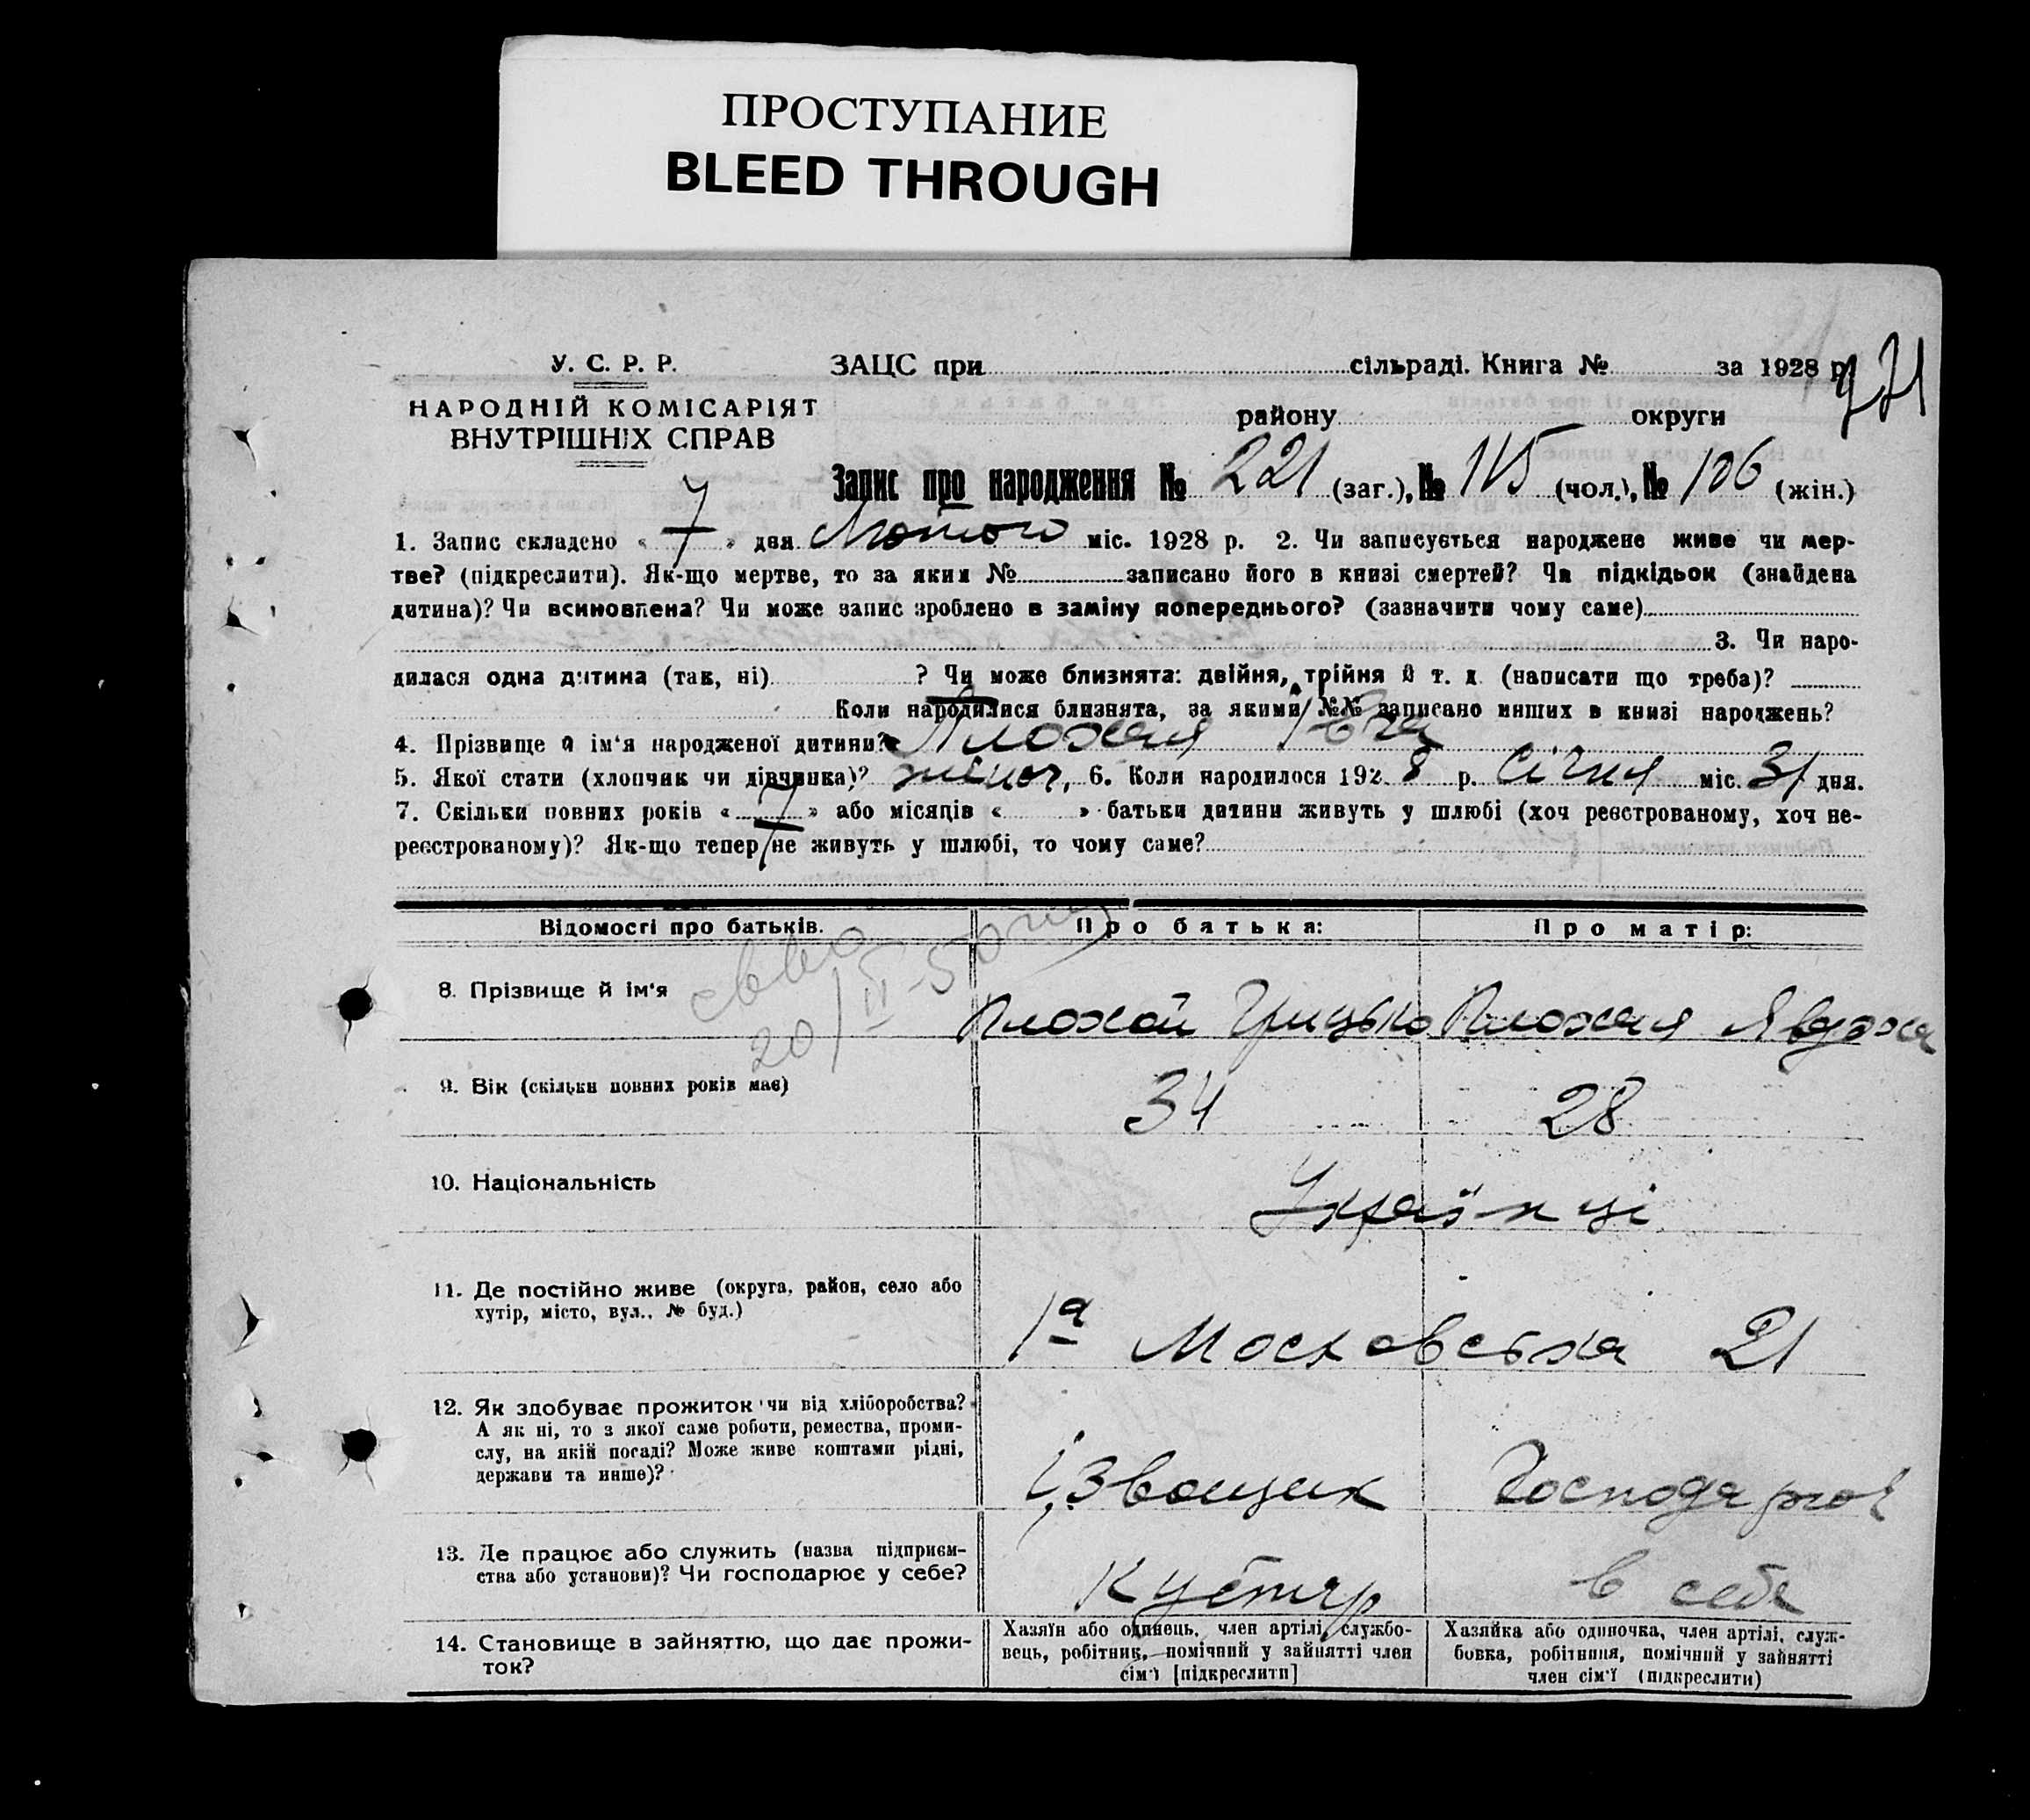 ПРОСТУПАНИЕ
BLEED THROUGH
У. С. Р. Р. ЗАЦС при сільраді. Книга № за 1928 р.
НАРОДНІЙ КОМІСАРІЯТ
ВНУТРІШНІХ СПРАВ
району округи
Запис про народження № 221 (заг.), № 115 (чол.), № 106 (жін.)
1. Запис складено « 7 » дня Лютого міс. 1928 р. 2. Чи записується народжене живе чи мер-
тве? (підкреслити). Як-що мертве, то за яким № записано його в книзі смертей? Чи підкідьок (знайдена
дитина)? Чи всиновлена? Чи може запис зроблено в заміну попереднього? (зазначити чому саме)
3. Чи наро-
дилася одна дитина (так, ні) ? Чи може близнята: двійня, трійня й т. д. (написати що треба)?
Коли народилися близнята, за якими №№ записано инших в книзі народжень?
4. Прізвище й ім'я народженої дитини? Плохая
5. Якої стати (хлопчик чи дівчинка)? жіноч. 6. Коли народилося 1928 р. Січня міс. 31 дня.
7. Скільки повних років « 7 » або місяців « » батьки дитини живуть у шлюбі (хоч реєстрованому, хоч не-
реєстрованому)? Як-що тепер не живуть у шлюбі, то чому саме?
Відомості про батьків. Про батька: Про матір:
8. Прізвище й ім'я Плохой Грицько Плохая Явдоха
20/II-50
9. Вік (скільки повних років має) 34 28
10. Національність Українці
11. Де постійно живе (округа, район, село або
хутір, місто, вул., № буд.) 1а Московська 21
12. Як здобуває прожиток чи від хліборобства?
А як ні, то з якої саме роботи, ремества, проми-
слу, на якій посаді? Може живе коштами рідні,
держави та инше)? Ізвощик Господарює
13. Де працює або служить (назва підприєм-
ства або установи)? Чи господарює у себе? Кустар в себе
14. Становище в зайняттю, що дає прожи-
ток?
Хазяїн або одинець, член артілі, службо-
вець, робітник, помічний у зайнятті член
сім'ї [підкреслити]
Хазяйка або одиночка, член артілі, служ-
бовка, робітниця, помічний у зайнятті
член сім'ї (підкреслити)